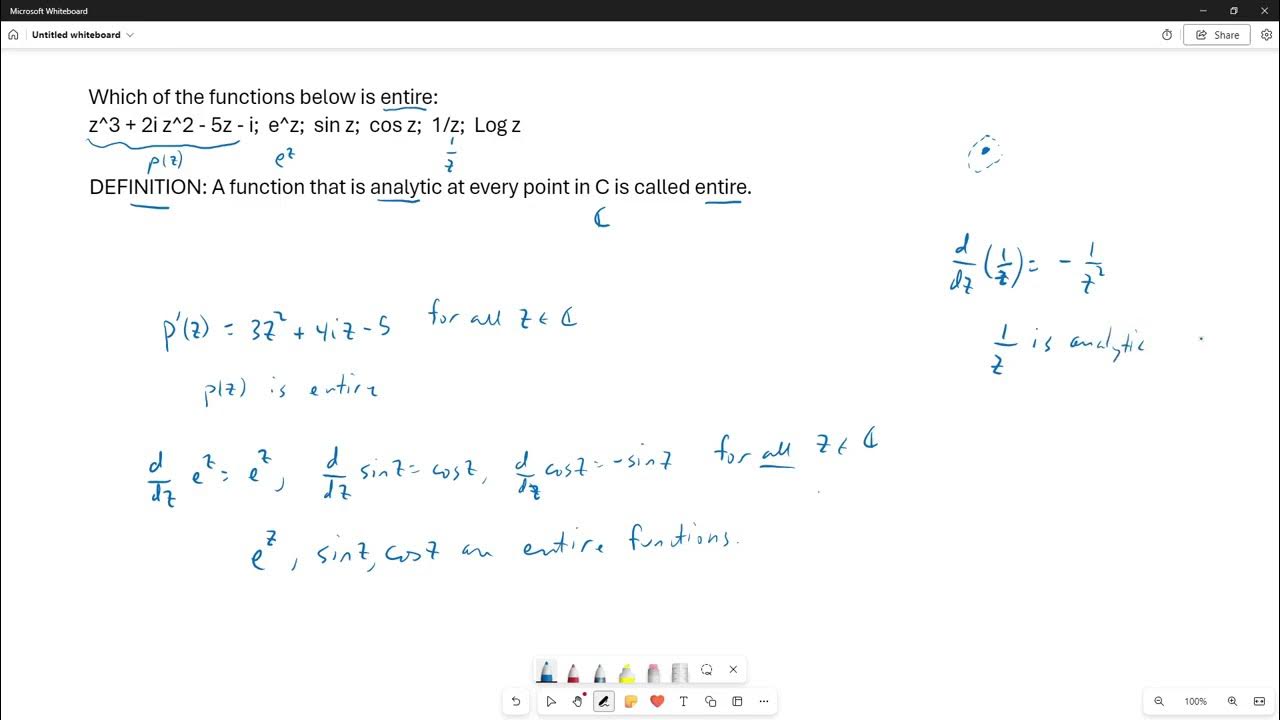 Microsoft Whiteboard
Untitled whiteboard
Share
Which of the functions below is entire:
z^3 + 2i z^2 - 5z - i; e^z; sin z; cos z; 1/z; Log z
p(z) e^z 1/z
DEFINITION: A function that is analytic at every point in C is called entire.
ℂ
d/dz (1/z) = - 1/z²
p'(z) = 3z² + 4iz - 5 for all z ∈ ℂ
1/z is analytic
p(z) is entire
d/dz e^z = e^z, d/dz sin z = cos z, d/dz cos z = -sin z for all z ∈ ℂ
e^z, sin z, cos z are entire functions.
100%